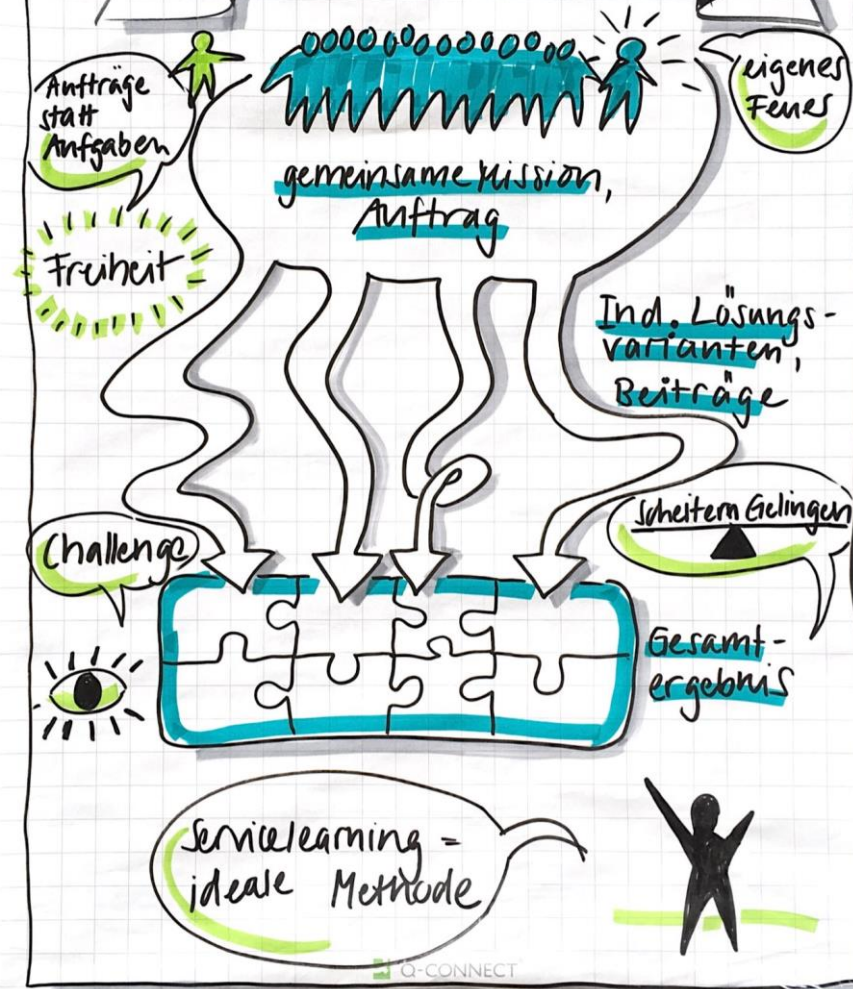 Aufträge
statt
Aufgaben
eigenes
Feuer
gemeinsame Mission,
Auftrag
Freiheit
Ind. Lösungs-
varianten,
Beiträge
Challenge
Scheitern Gelingen
Gesamt-
ergebnis
Servicelearning =
ideale Methode
Q-CONNECT